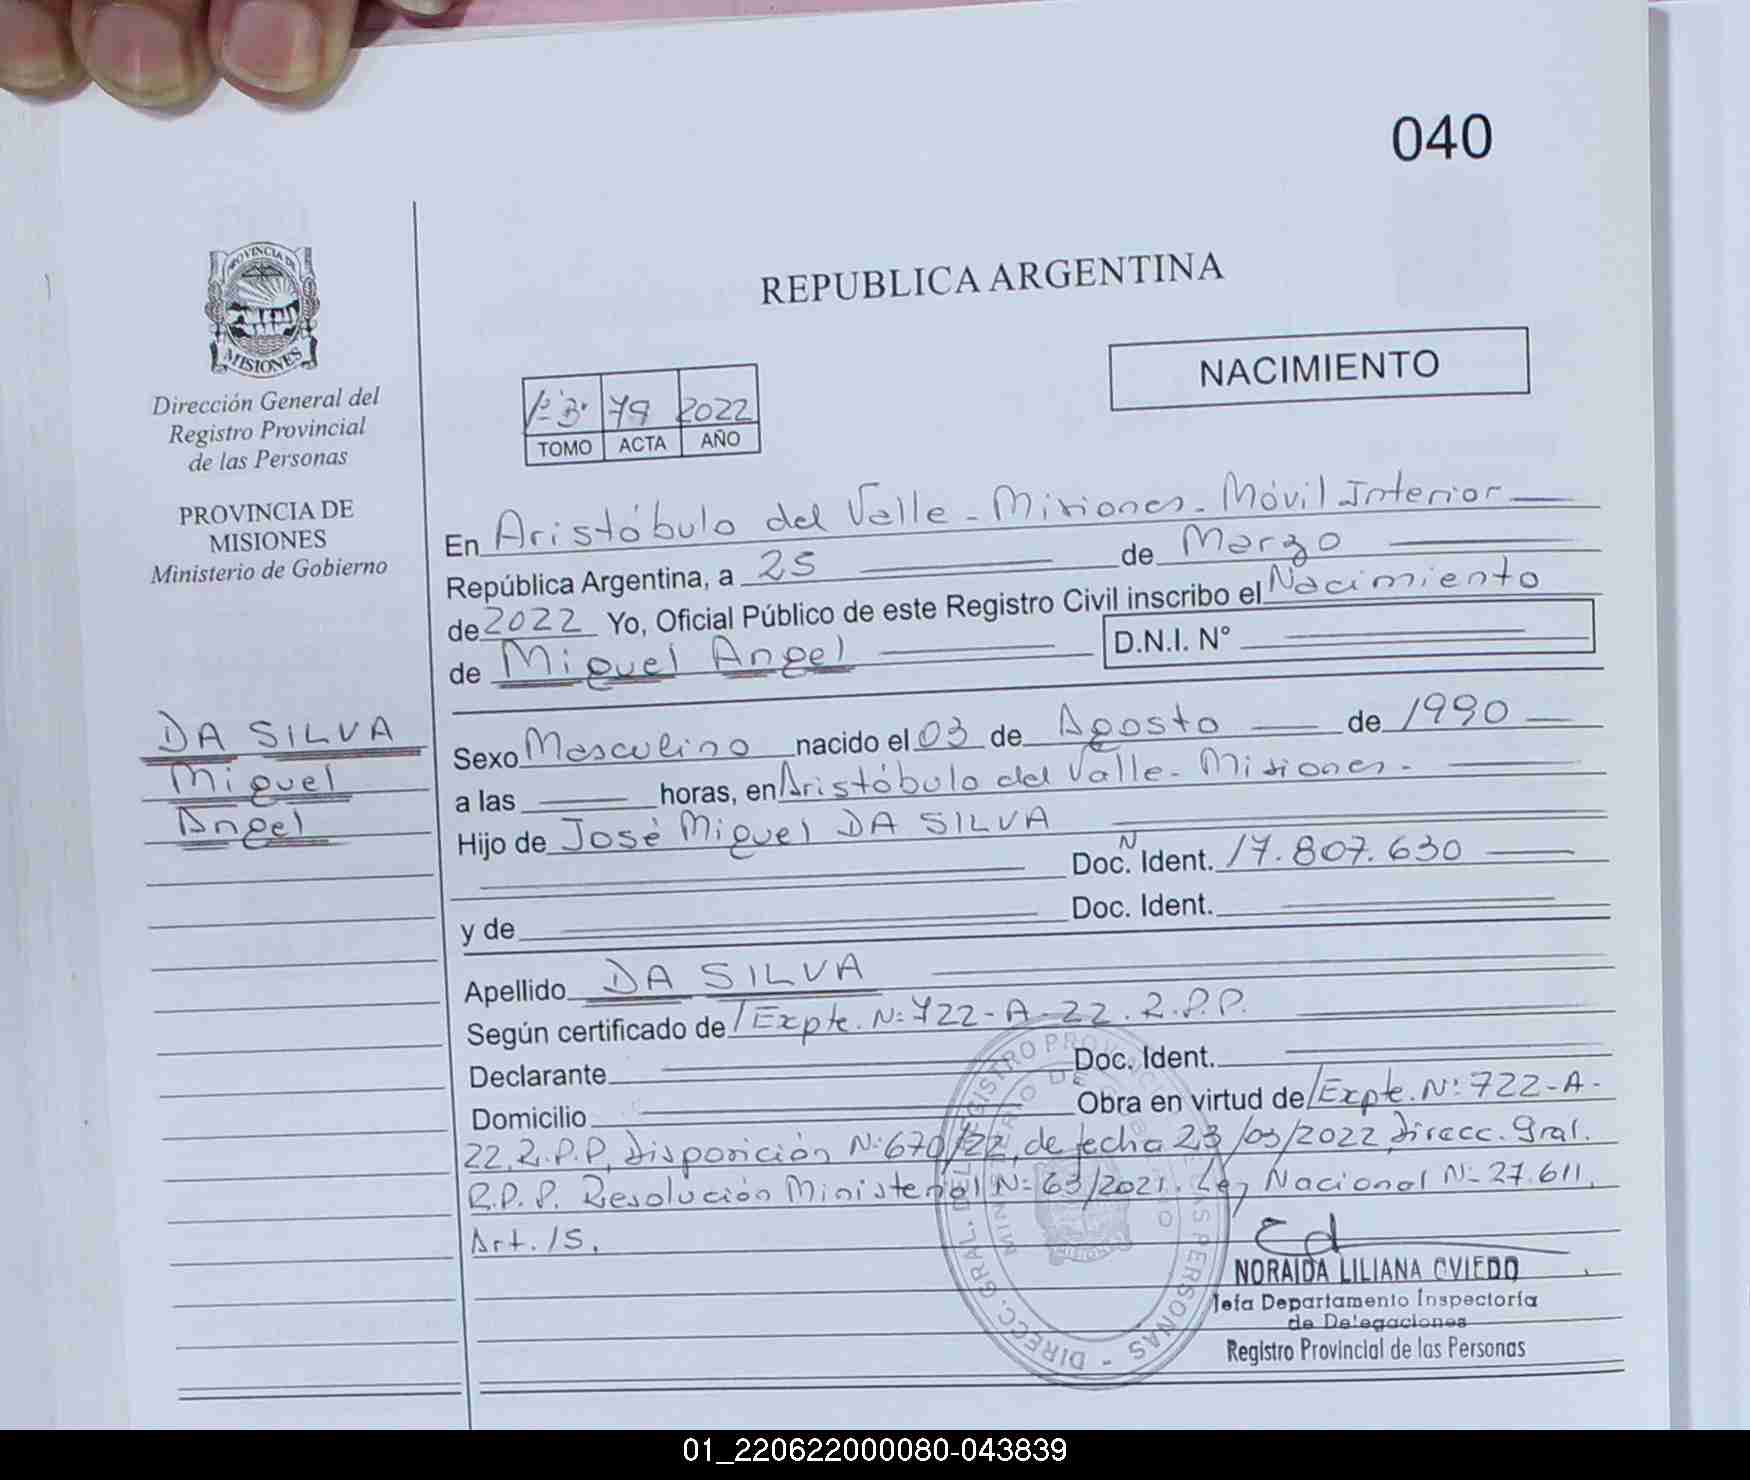 040
PROVINCIA DE
MISIONES
Dirección General del
Registro Provincial
de las Personas
PROVINCIA DE
MISIONES
Ministerio de Gobierno
DA SILVA
Miguel
Angel
REPUBLICA ARGENTINA
NACIMIENTO
1º "B" 79 2022
TOMO ACTA AÑO
En Aristóbulo del Valle - Misiones - Móvil Interior
República Argentina, a 25 de Marzo
de 2022 Yo, Oficial Público de este Registro Civil inscribo el Nacimiento
de Miguel Angel D.N.I. N°
Sexo Masculino nacido el 03 de Agosto de 1990
a las horas, en Aristóbulo del Valle - Misiones -
Hijo de José Miguel DA SILVA
Doc. N Ident. 17.807.630
y de Doc. Ident.
Apellido DA SILVA
Según certificado de Expte. Nº 722-A-22. R.P.P.
Declarante Doc. Ident.
Domicilio Obra en virtud de Expte. Nº 722-A-
22. R.P.P. Disposición Nº 670/22, de fecha 23/03/2022, Direcc. Gral.
R.P.P. Resolución Ministerial Nº 63/2021. Ley Nacional Nº 27.611,
Art. 15.
DIRECC. GRAL. DEL REGISTRO PROVINCIAL DE LAS PERSONAS
NORAIDA LILIANA OVIEDO
Jefa Departamento Inspectoría
de Delegaciones
Registro Provincial de las Personas
01_220622000080-043839